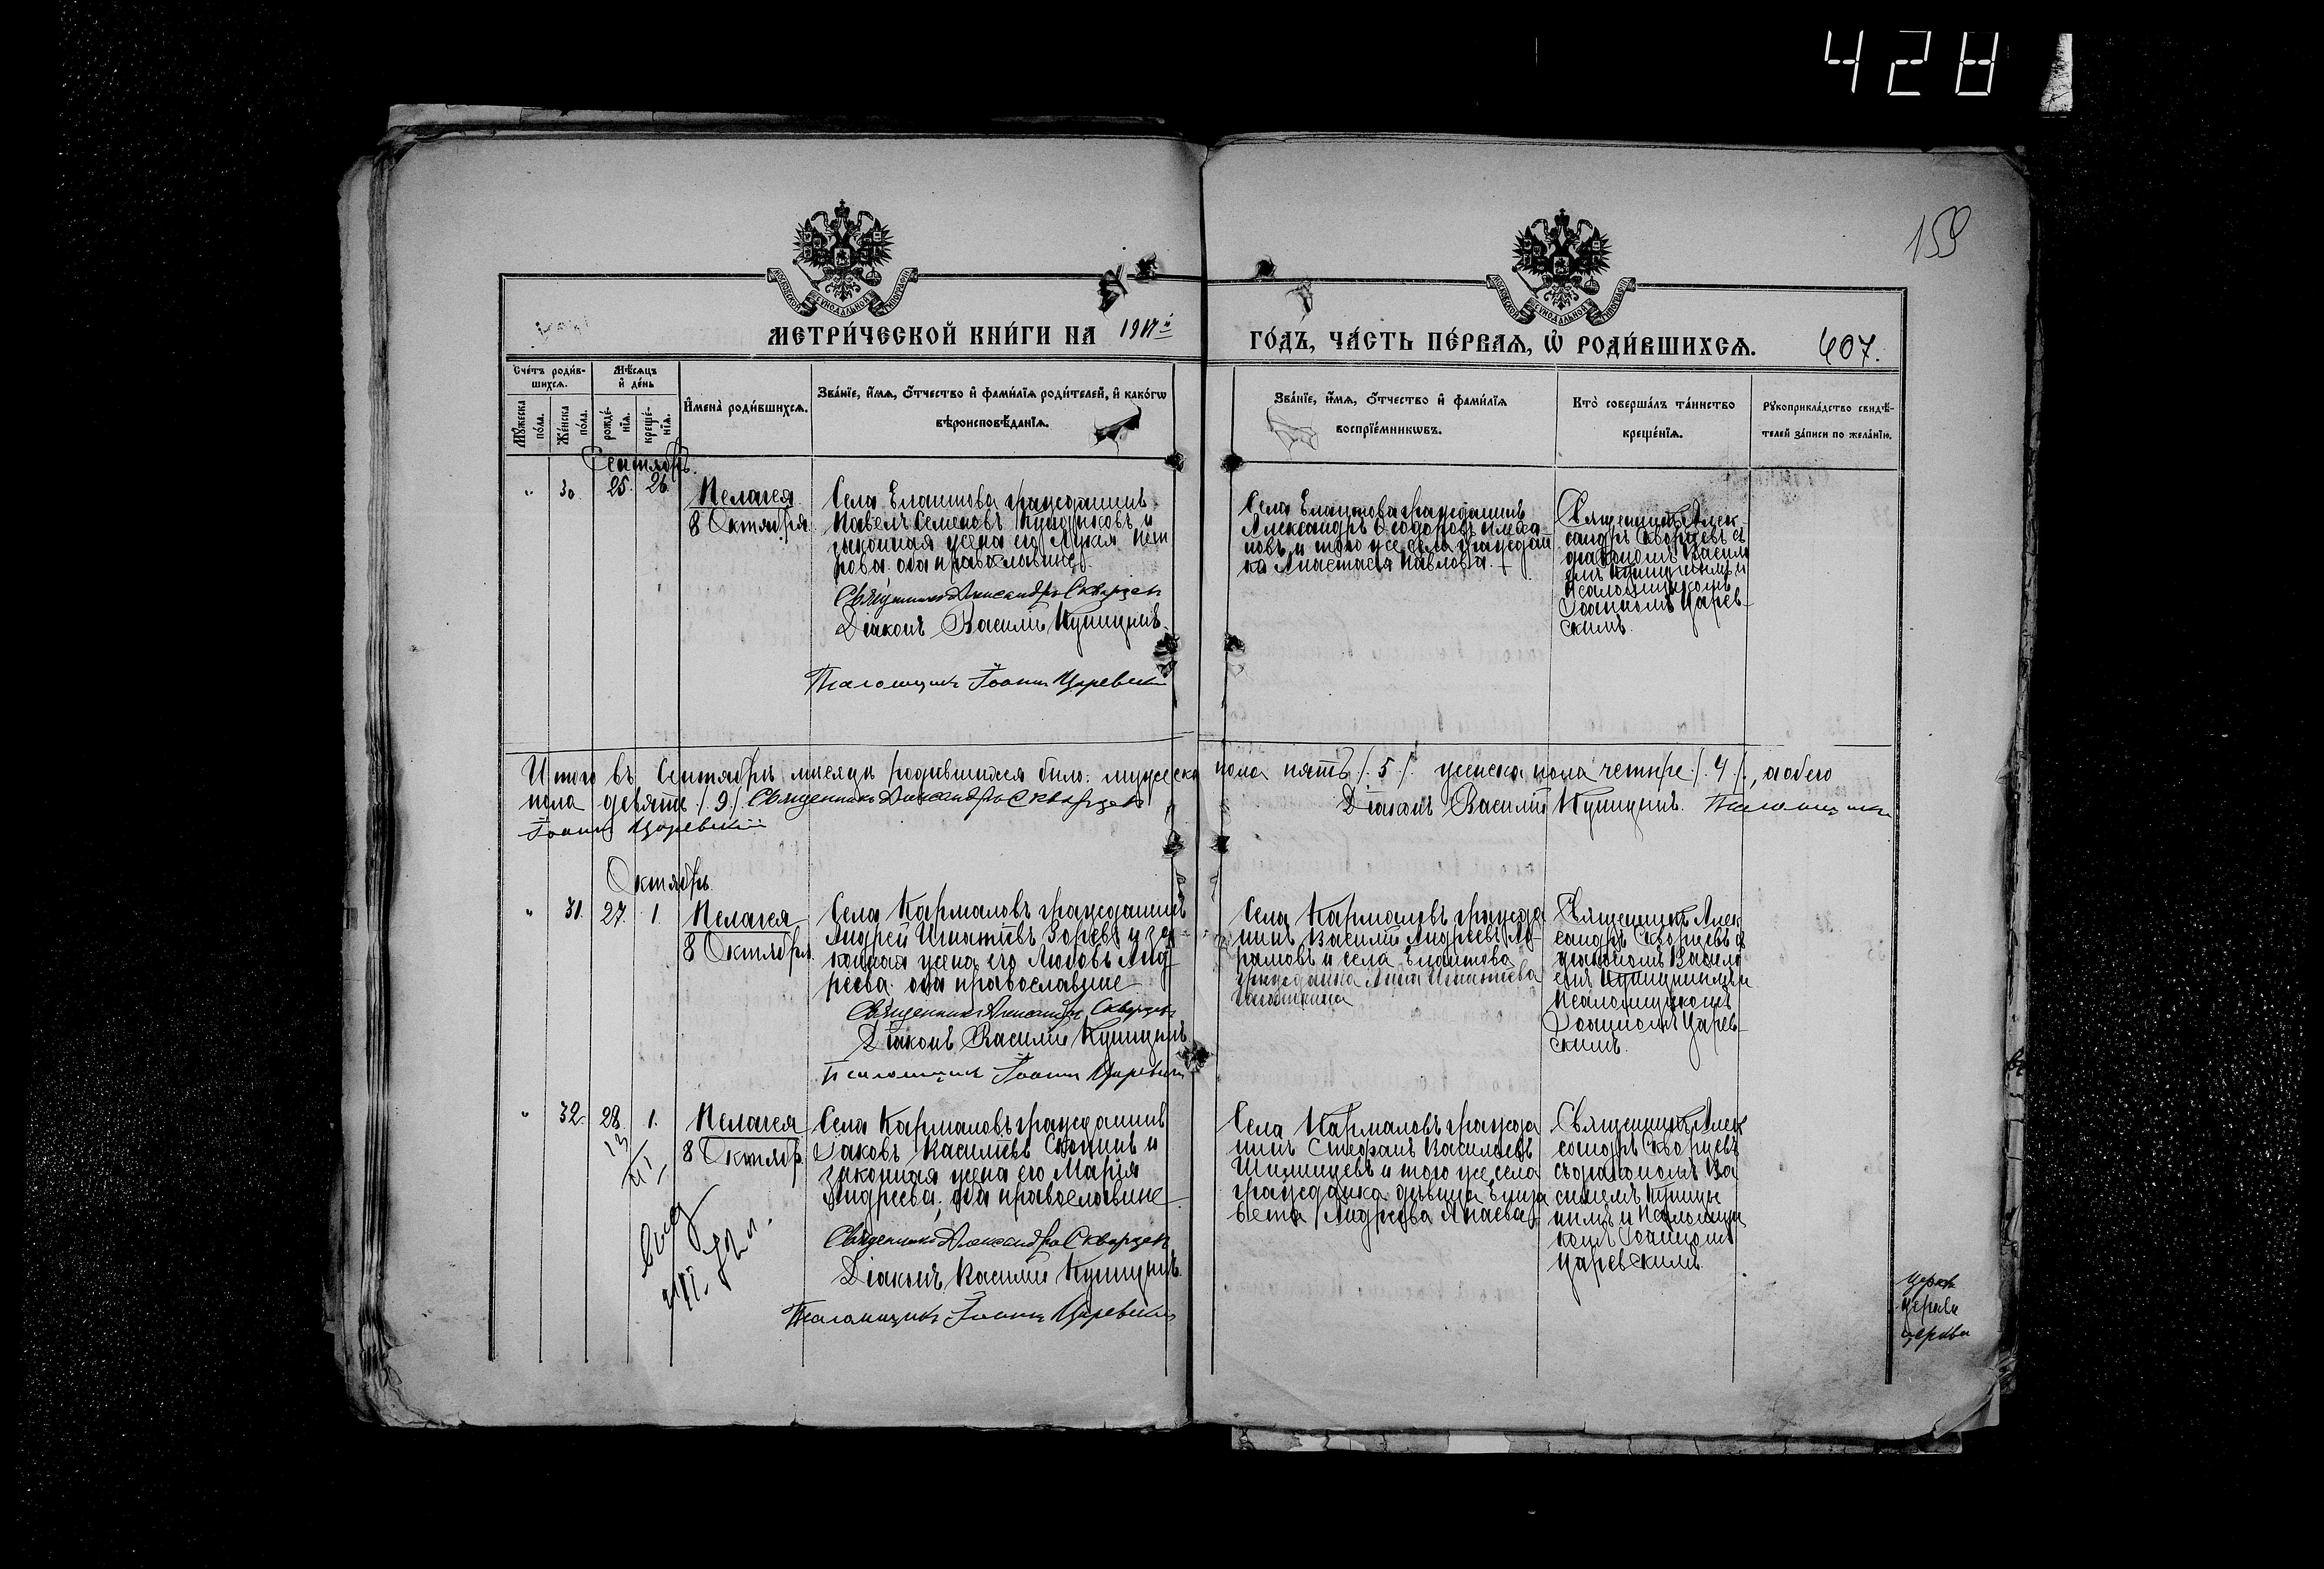 428
159
МОСКОВСКОЙ СУНОДАЛЬНОЙ ТИПОГРАФІИ
МОСКОВСКОЙ СУНОДАЛЬНОЙ ТИПОГРАФІИ
МЕТРИ́ЧЕСКОЙ КНИ́ГИ НА 1917й ГО́ДЪ, ЧА́СТЬ ПЕ́РВАѦ, Ѡ҆ РОДИ́ВШИХСѦ.
407.
Сче́тъ роди́в-
шихсѧ.
Мѣ́сѧцъ
и҆ де́нь
Мꙋ́жеска по́ла.
Же́нска по́ла.
рожде́-
нїѧ.
креще́-
нїѧ.
И҆мена̀ роди́вшихсѧ.
Зва́нїе, и҆́мѧ, ѻ҆́тчество и҆ фами́лїѧ роди́телей, и҆ како́гѡ
вѣроисповѣ́данїѧ.
Зва́нїе, и҆́мѧ, ѻ҆́тчество и҆ фами́лїѧ
воспрїе́мникѡвъ.
Кто̀ соверша́лъ та́инство
креще́нїѧ.
Рꙋкоприкла́дство свидѣ́-
телей за́писи по жела́нїю.
Сентябрь.
" 30. 25. 26.
Пелагея
8 Октября
Села Елаткова гражданинъ
Павелъ Семеновъ и
законная жена его Лукія Пет
рова оба православные.
Священникъ Александръ Скворцовъ
Діаконъ Василій Купицынъ.
Псаломщикъ Іоаннъ Царевскій
Села Елаткова гражданинъ
Александръ Ѳеодоровъ
новъ и того же села граждан
ка Анастасія Павлова.
Священникъ Алек
сандръ Скворцевъ съ
діакономъ Васил
емъ Купицинымъ и
псаломщикомъ
Іоанномъ Царев-
скимъ.
Итого въ Сентябрѣ мѣсяцѣ родившихся было: мужеска пола пять /.5./. женска пола четыре /.4./., а обоего
пола девять /.9./. Священникъ Александръ Скворцовъ Діаконъ Василій Купицынъ. Псаломщикъ
Іоаннъ Царевскій
Октябрь.
" 31. 27. 1.
Пелагея
8 Октября.
Села Кармаловъ гражданинъ
Андрей Игнатіевъ Зоревъ и за
конная жена его Любовь Анд
реева оба православные
Священникъ Александръ Скворцовъ
Діаконъ Василій Купицынъ
Псаломщикъ Іоаннъ Царевскій
Села Кармаловъ гражда
нинъ Василій Андреевъ Аб
рамовъ и села Елаткова
гражданка Анна Игнатіева
Священникъ Алек
сандръ Скворцевъ съ
діакономъ Васил
емъ Купицинымъ и
псаломщикомъ
Іоанномъ Царев-
скимъ.
" 32. 28. 1.
Пелагея
8 Октябр.
Села Кармаловъ гражданинъ
Іаковъ Василіевъ и
законная жена его Марія
Андреева, оба православные
Священникъ Александръ Скворцовъ
Діаконъ Василій Купицынъ.
Псаломщикъ Іоаннъ Царевскій
Села Кармаловъ гражда
нинъ Стефанъ Василіевъ
и того же села
гражданка дѣвица Елиза
вета Андреева Апаева
Священникъ Алек
сандръ Скворцевъ
съ діакономъ Ва
силіемъ Купицы
нымъ и псаломщи
комъ Іоанномъ
Царевскимъ.
13
VI
церкв
церкви
церкви